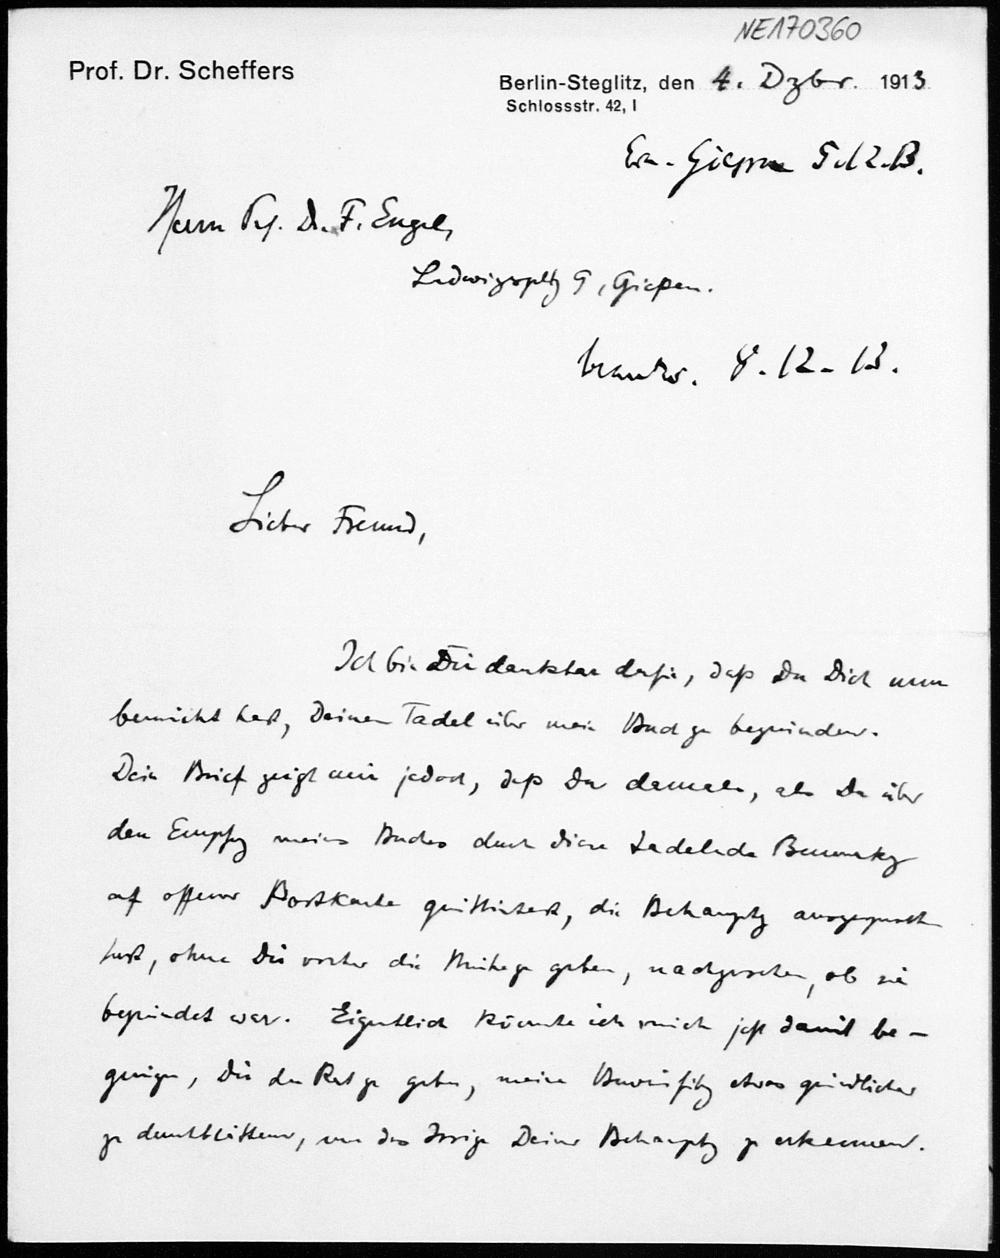 NE170360
Prof. Dr. Scheffers
Berlin-Steglitz, den 4. Dzbr. 1913
Schlossstr. 42, I
Giessen 5.12.13.
Herrn Prf. Dr. F. Engel,
Ludwigspltz 9, Gießen.
beantw. 8.12-13.
Lieber Freund,
Ich bin Dir dankbar dafür, daß Du Dich nun
bemüht hast, Deinen Tadel über mein Buch zu begründen.
Dein Brief zeigt mir jedoch, daß Du damals, als Du über
den Empfg meines Buches durch diese tadelnde Bemerkg
auf offener Postkarte quittiertest, die Behauptg ausgesprochen
hast, ohne Dir vorher die Mühe zu geben, nachzusehen, ob sie
begründet war. Eigentlich könnte ich mich jetzt damit be-
gnügen, Dir den Rat zu geben, meine etwas gründlicher
zu durchblättern, um das Irrige Deiner Behauptg zu erkennen.